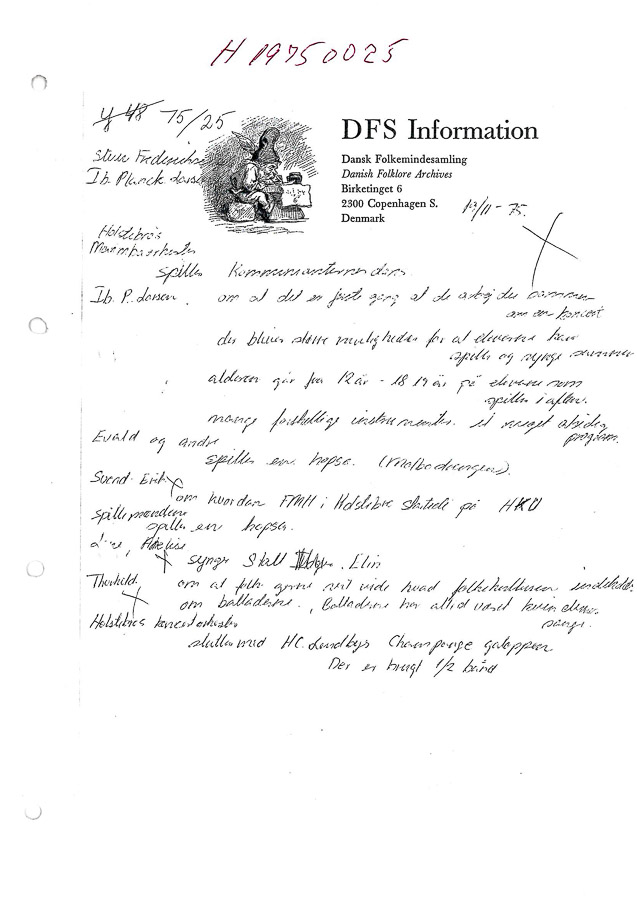 H 19750025
y 48 75/25
DFS Information
Dansk Folkemindesamling
Danish Folklore Archives
Birketinget 6
2300 Copenhagen S.
Denmark
13/11-75.
Ib. Planck Larsen
Holstebro's
spiller
Ib. P. Larsen. om at det er første gang at de arbejder sammen
om en koncert
der bliver større muligheder for at eleverne kan
spille og synge sammen
alderen går fra 12 år - 18 19 år på eleverne som
spiller i aften.
mange forskellige instrumenter. et meget alsidig
program.
Evald og andre
spiller en hopsa.
Svend Erik
om hvordan FMH i Holstebro startede på HKU
Spillemændene
spiller en hopsa.
synge Skall Elin
Thorkild. om at folk gerne vil vide hvad folkekulturen indeholder
om balladerne. Balladerne har altid været
sange.
Holstebros koncertorkester
slutter med HC. Lumbyes Champagne galoppen
Der er brugt 1/2 bånd